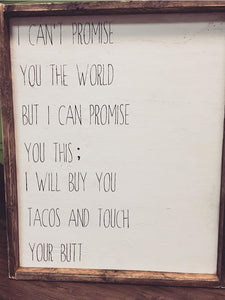 I CAN'T PROMISE
YOU THE WORLD
BUT I CAN PROMISE
YOU THIS;
I WILL BUY YOU
TACOS AND TOUCH
YOUR BUTT